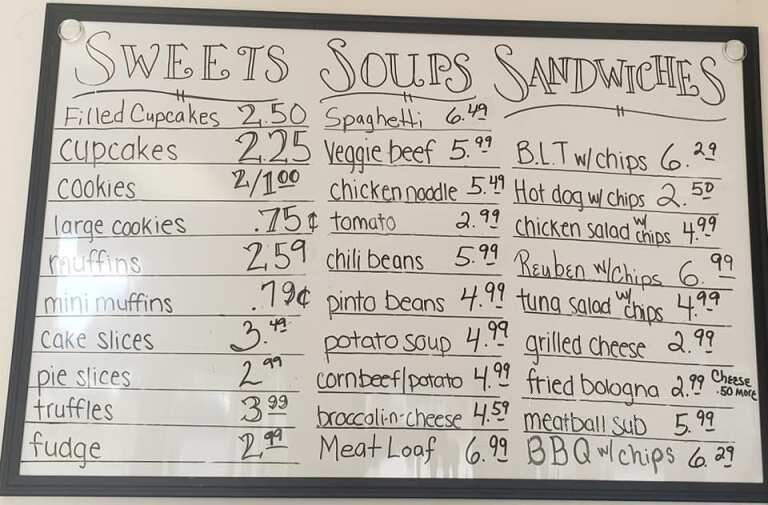 SWEETS
Filled Cupcakes 2.50
cupcakes 2.25
cookies 2/1.00
large cookies .75¢
muffins 2.59
mini muffins .79¢
cake slices 3.49
pie slices 2.99
truffles 3.99
fudge 2.99
SOUPS
Spaghetti 6.49
Veggie beef 5.99
chicken noodle 5.49
tomato 2.99
chili beans 5.99
pinto beans 4.99
potato soup 4.99
cornbeef/potato 4.99
broccoli-n-cheese 4.59
Meat Loaf 6.99
SANDWICHES
B.L.T w/chips 6.29
Hot dog w/chips 2.50
chicken salad w/ chips 4.99
Reuben w/chips 6.99
tuna salad w/ chips 4.99
grilled cheese 2.99
fried bologna 2.99 Cheese .50 more
meatball sub 5.99
BBQ w/chips 6.29